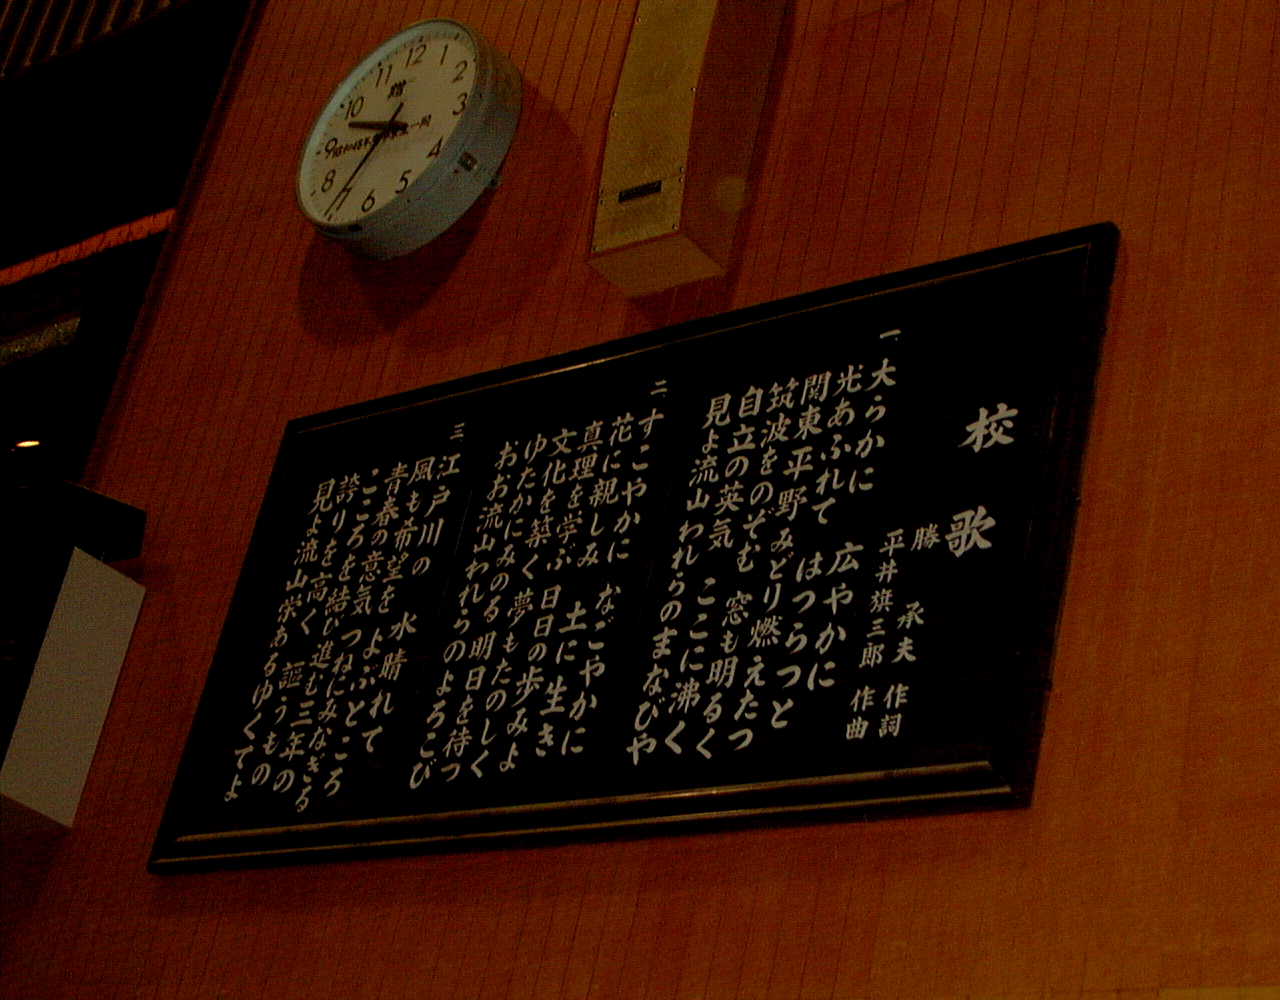 12
1
2
3
4
5
6
7
8
9
10
11
贈
校歌
勝 承夫 作詞
平井旗三郎 作曲
一、大らかに 広やかに
光あふれて はつらつと
関東平野みどり燃えたつ
筑波をのぞむ 窓も明るく
自立の英気 ここに沸く
見よ流山われらのまなびや
二、すこやかに なごやかに
花に親しみ 土に生き
真理を学ぶ 日日の歩みよ
文化を築く 夢もたのしく
ゆたかにみのる 明日を待つ
おお流山われらのよろこび
三、江戸川の 水晴れて
風も希望を よぶところ
青春の意気 つねにみなぎる
こころを結び進む三年の
誇りを高く 謳うもの
見よ流山栄あるゆくてよ